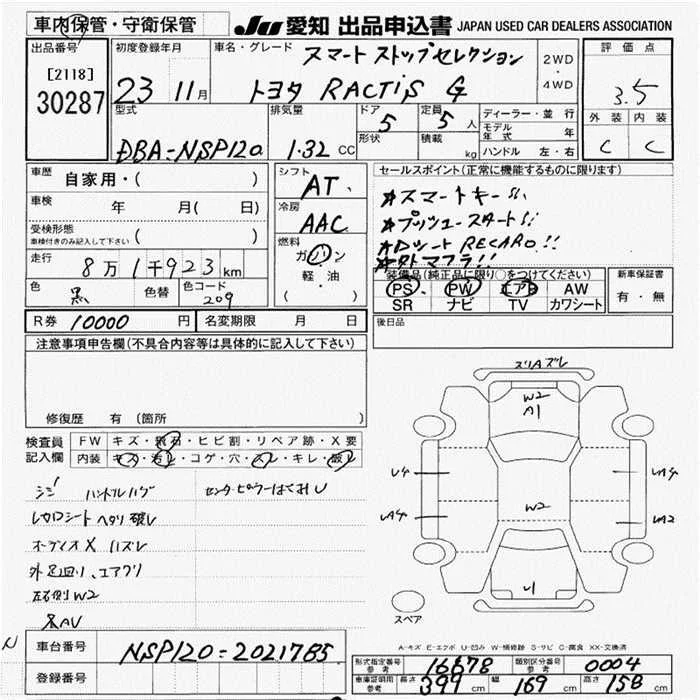 車内保管・守衛保管
JU 愛知 出品申込書 JAPAN USED CAR DEALERS ASSOCIATION
出品番号
[2118]
30287
初度登録年月
23 11月
車名・グレード
スマート ストップセレクション
トヨタ RACTIS G
2WD
・
4WD
評価点
3.5
外装 内装
C C
型式
DBA-NSP120
排気量
1.32 CC
ドア
5
形状
定員
5 人
積載
kg
ディーラー・並行
モデル年式 年
ハンドル 左・右
車歴 自家用・( )
車検 年 月( 日)
受検形態
車検付きのみ記入して下さい ( )
走行 8万1千923km
色 黒 色替 色コード 209
シフト
AT
冷房
AAC
燃料
ガソリン
軽・油
( )
セールスポイント(正常に機能するものに限ります)
スマートキー!!
プッシュースタート!!
Dシート RECARO!!
外マフラ!!
装備品(純正品に限り○をつけてください)
PS PW エアB AW
SR ナビ TV カワシート
新車保証書
有・無
後日品
R券 10000 円
名変期限 月 日
注意事項申告欄(不具合内容等は具体的に記入して下さい)
修復歴 有 (箇所 )
検査員記入欄
FW キズ・飛石・ヒビ割・リペア跡・X要
内装 キズ・汚れ・コゲ・穴・スレ・キレ・破レ
シミ ハンドルハゲ
レカロシート ヘタリ 破レ
オーディオX ハズレ
左右側 W2
スリAズレ
W2
A1
U4
W2
UA2
U
スペア
A-キズ E-エクボ U-凹み W-補修跡 S-サビ C-腐食 XX-交換済
N
車台番号 NSP120-2021785
登録番号
形式指定番号 参考 16678
類別区分番号 参考 0004
車庫証明用 参考 長さ 399cm 幅 169cm 高さ 158cm